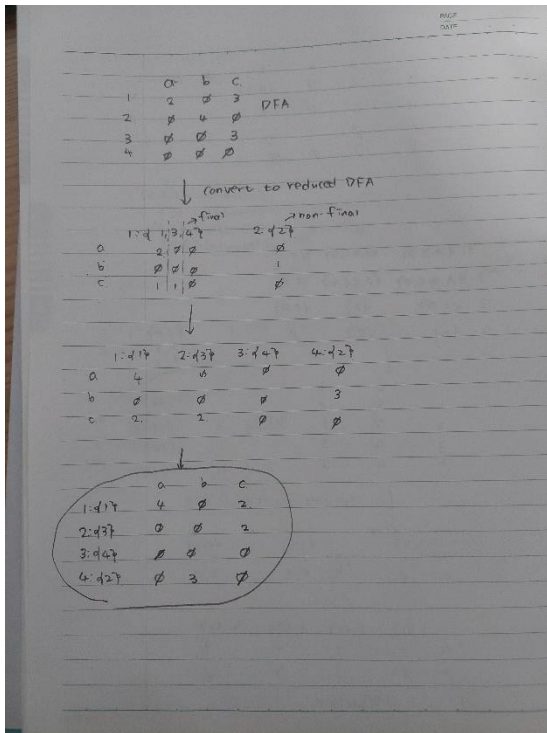 PAGE
DATE
a b c
1 2 ∅ 3 DFA
2 ∅ 4 ∅
3 ∅ ∅ 3
4 ∅ ∅ ∅
↓ convert to reduced DFA
→final →non-final
1:{1,3,4} 2:{2}
a 2 ∅ ∅ ∅
b ∅ ∅ ∅ 1
c 1 1 ∅ ∅
↓
1:{1} 2:{3} 3:{4} 4:{2}
a 4 ∅ ∅ ∅
b ∅ ∅ ∅ 3
c 2 2 ∅ ∅
↓
a b c
1:{1} 4 ∅ 2
2:{3} ∅ ∅ 2
3:{4} ∅ ∅ ∅
4:{2} ∅ 3 ∅